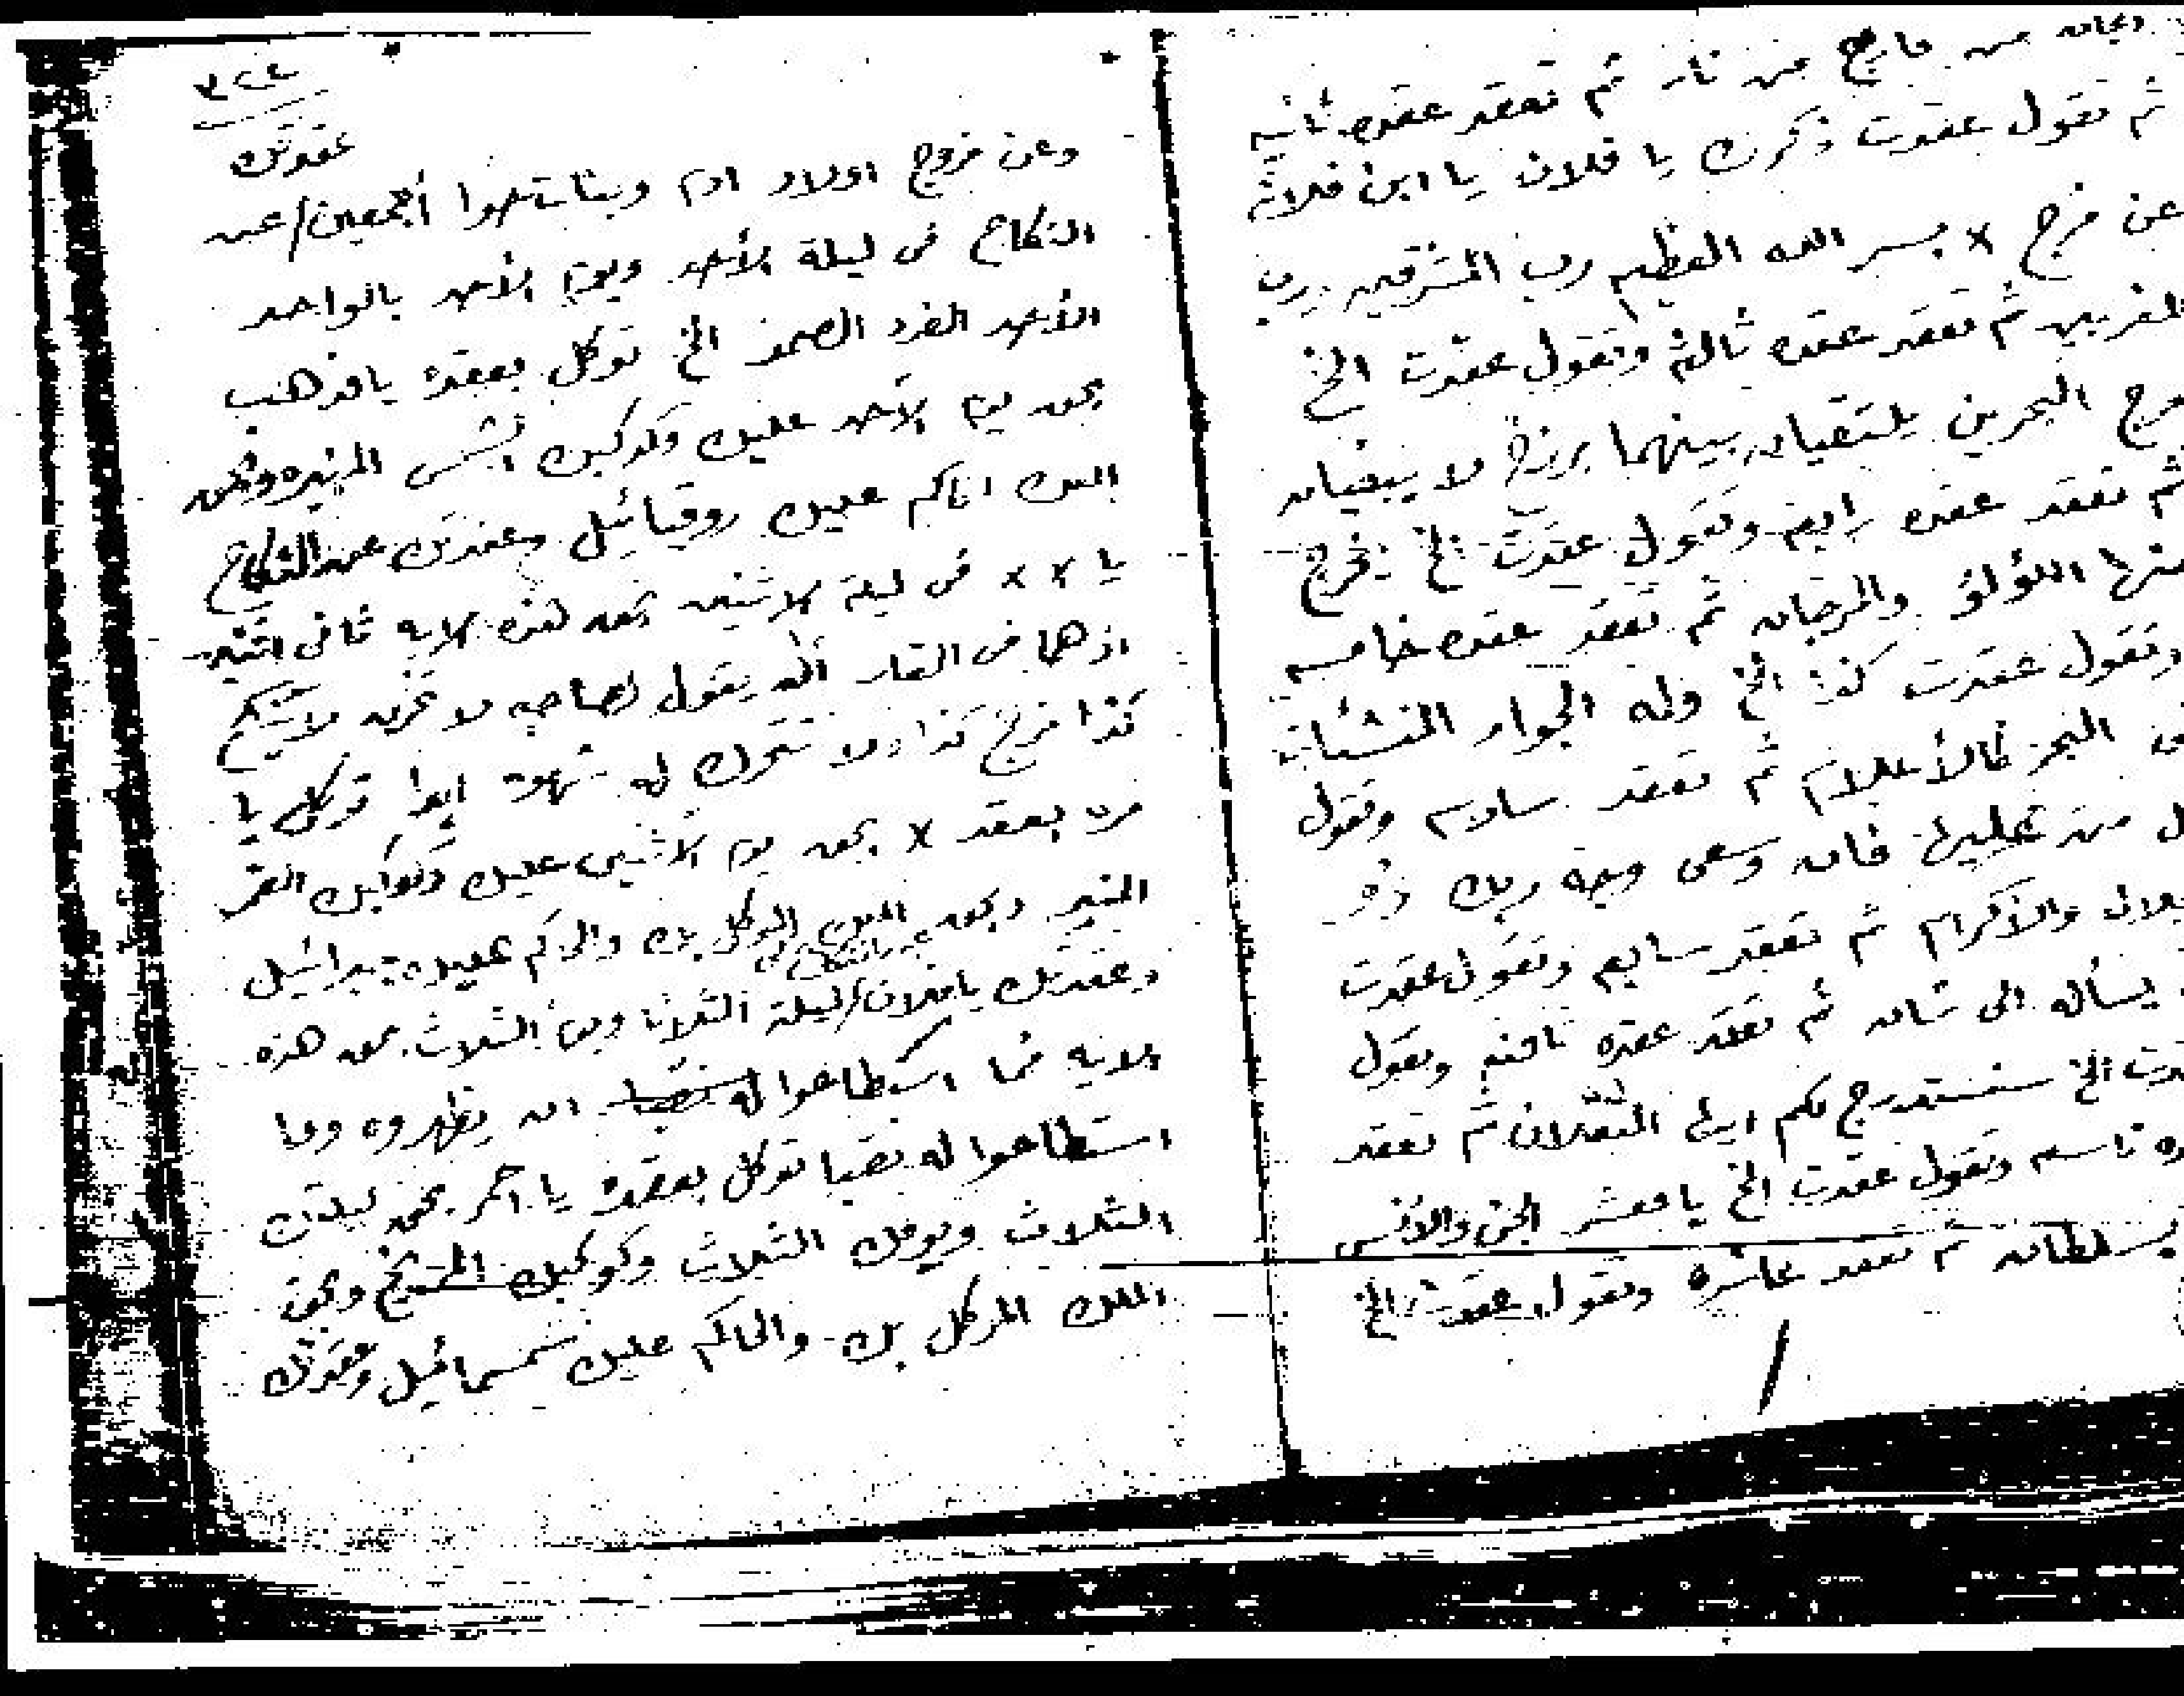 الجان من مارج من نار ثم تعقد عقده ثانيه
ثم تقول عقدت ذكرك يا فلان يا ابن فلانه
عن فرج x بسم الله العظيم رب المشرقين ورب
المغربين ثم تعقد عقده ثالثه وتقول عقدت الخ
مرج البحرين يلتقيان بينهما برزخ لا يبغيان
ثم تعقد عقده رابعه وتقول عقدت الخ يخرج
منها اللؤلؤ والمرجان ثم تعقد عقده خامسه
وتقول عقدت كذا الخ وله الجوار المنشئات
فى البحر كالأعلام ثم تعقد سادسه وتقول
كل من عليها فان وسعى وجه ربك ذو
الجلال والأكرام ثم تعقد سابعه وتقول عقدت
يسأله الى شان ثم تعقد عقده ثامنه وتقول
عقدت الخ سنستدرج لكم ايها الثقلان ثم تعقد
عقده تاسعه وتقول عقدت الخ يا معشر الجن والأنس
بسلطان ثم تعقد عاشره وتقول عقدت الخ
٣٢٤
عقدتك
وعن فروج اولاد ادم وبنات حوا أجمعين / عن
النكاح فى ليلة الأحد ويوم الأحد بالواحد
الأحد الفرد الصمد الخ توكل بعقده يا مذهب
بحق يوم الأحد عليك وكوكبك الشمس المنيره وبحق
الملك الحاكم عليك روقيائيل وعقدتك عن النكاح
يا x x فى ليلة الاثنين بحق هذه الايه ثانى اثنين
اذ هما فى الغار اذ يقول لصاحبه لا تحزن لا ينكح
كذا فرج كذا ولا تتحرك له شهوة ابدا توكل يا
مره بعقد x بحق يوم الأثنين عليك وكوكبك القمر
المنير وبحق الملك الموكل بك والحاكم عليك جبرائيل
وعقدتك يا فلان / عن النكاح فى ليلة الثلاثا ويوم الثلاث بحق هذه
الايه فما اسطاعوا له نقبا ان يظهروه وما
استطاعوا له نقبا توكل بعقده يا احمر بحق ليلتك
الثلاث ويومك الثلاث وكوكبك المريخ وبحق
الملك الموكل بك والحاكم عليك سمسمائيل وعقدتك